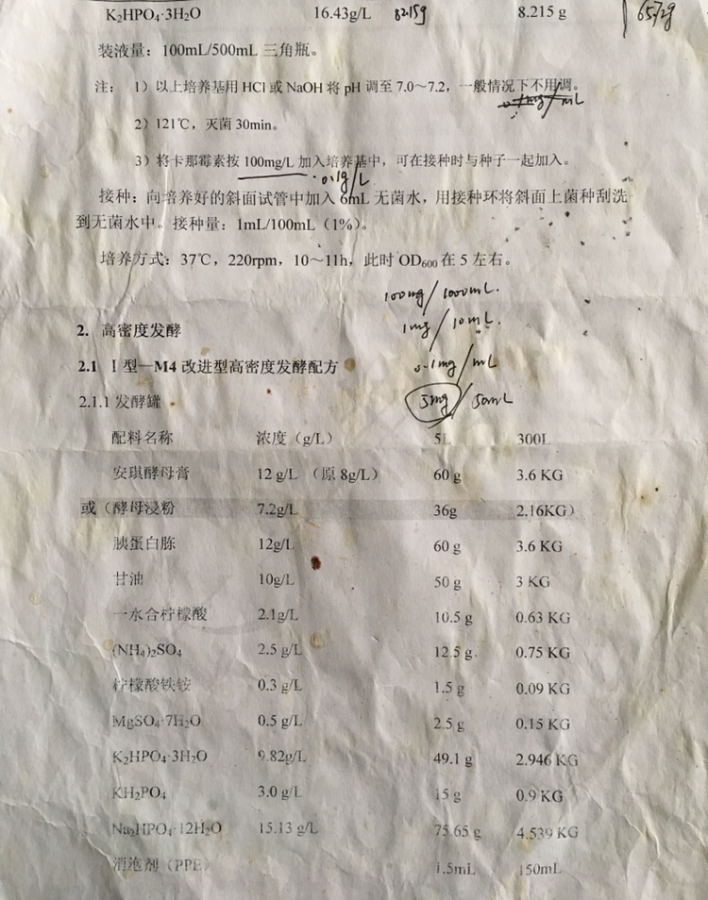 K₂HPO₄·3H₂O 16.43g/L 8.215g 8.215 g 65.72g
装液量：100mL/500mL 三角瓶。
注： 1）以上培养基用 HCl 或 NaOH 将 pH 调至 7.0～7.2，一般情况下不用调。
2）121℃，灭菌 30min。
3）将卡那霉素按 100mg/L 加入培养基中，可在接种时与种子一起加入。
0.1g/L
接种：向培养好的斜面试管中加入 6mL 无菌水，用接种环将斜面上菌种刮洗
到无菌水中。接种量：1mL/100mL（1%）。
培养方式：37℃，220rpm，10～11h，此时 OD₆₀₀ 在 5 左右。
100mg/1000mL.
1mg/10mL.
2. 高密度发酵
2.1 Ⅰ型—M4 改进型高密度发酵配方
0.1mg/mL
2.1.1 发酵罐
5mg/50mL
配料名称 浓度（g/L） 5L 300L
安琪酵母膏 12 g/L （原 8g/L） 60 g 3.6 KG
或（酵母浸粉 7.2g/L 36g 2.16KG）
胰蛋白胨 12g/L 60 g 3.6 KG
甘油 10g/L 50 g 3 KG
一水合柠檬酸 2.1g/L 10.5 g 0.63 KG
(NH₄)₂SO₄ 2.5 g/L 12.5 g 0.75 KG
柠檬酸铁铵 0.3 g/L 1.5 g 0.09 KG
MgSO₄·7H₂O 0.5 g/L 2.5 g 0.15 KG
K₂HPO₄·3H₂O 9.82g/L 49.1 g 2.946 KG
KH₂PO₄ 3.0 g/L 15 g 0.9 KG
Na₂HPO₄·12H₂O 15.13 g/L 75.65 g 4.539 KG
消泡剂（PPE） 1.5mL 150mL